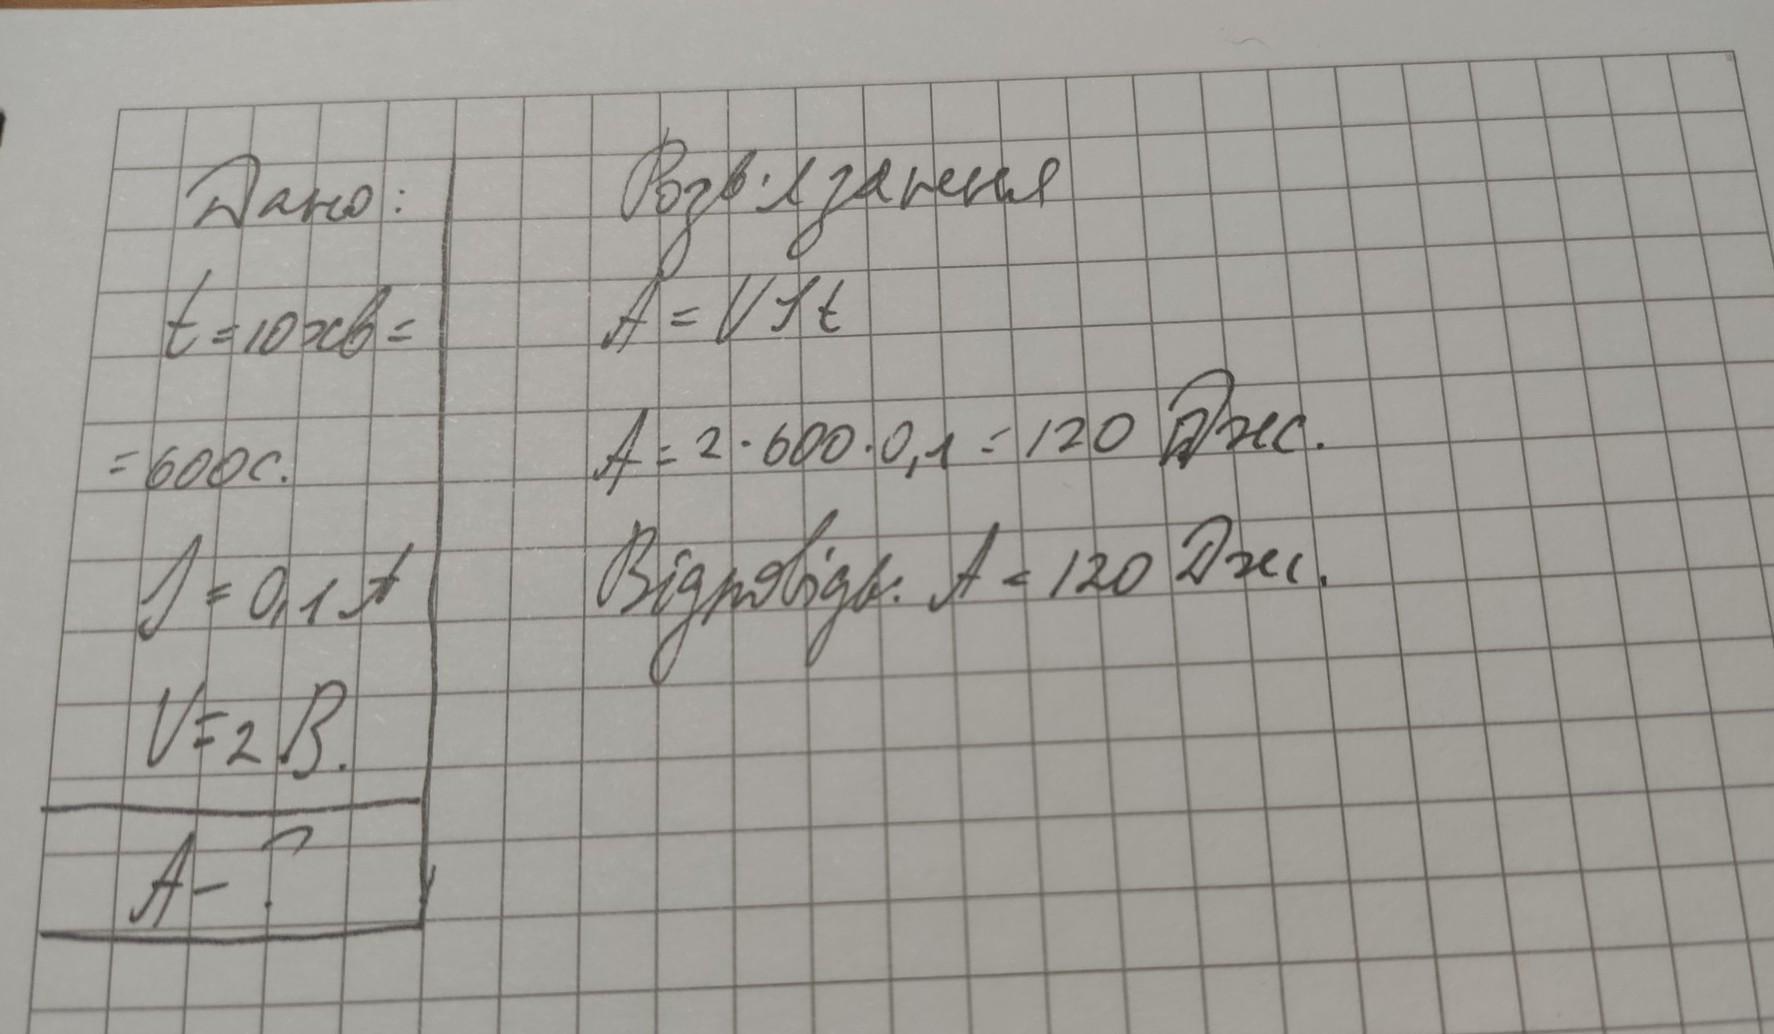 Дано:
t = 10 хв =
= 600 с.
I = 0,1 A
U = 2 В.
A - ?
Розв'язання
A = UIt
A = 2 · 600 · 0,1 = 120 Дж.
Відповідь: A = 120 Дж.